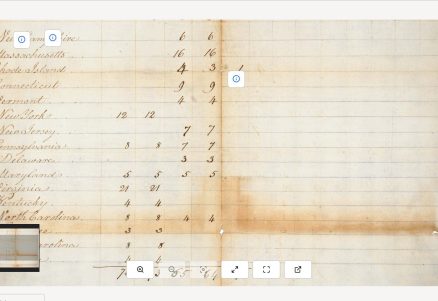 6 6
Massachusetts 16 16
Rhode Island 4 3 1
Connecticut 9 9
Vermont 4 4
New York 12 12
New Jersey 7 7
Pennsylvania 8 8 7 7
Delaware 3 3
Maryland 5 5 5 5
Virginia 21 21
Kentucky 4 4
North Carolina 8 8 4 4
3 3
8 8